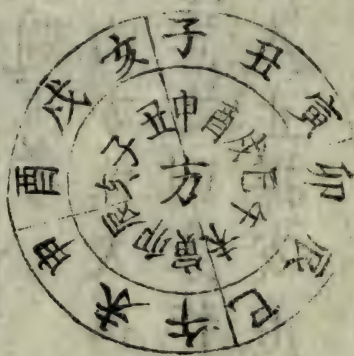 子丑寅卯辰巳午未申酉戌亥
申酉戌巳午未寅卯辰亥子丑
方